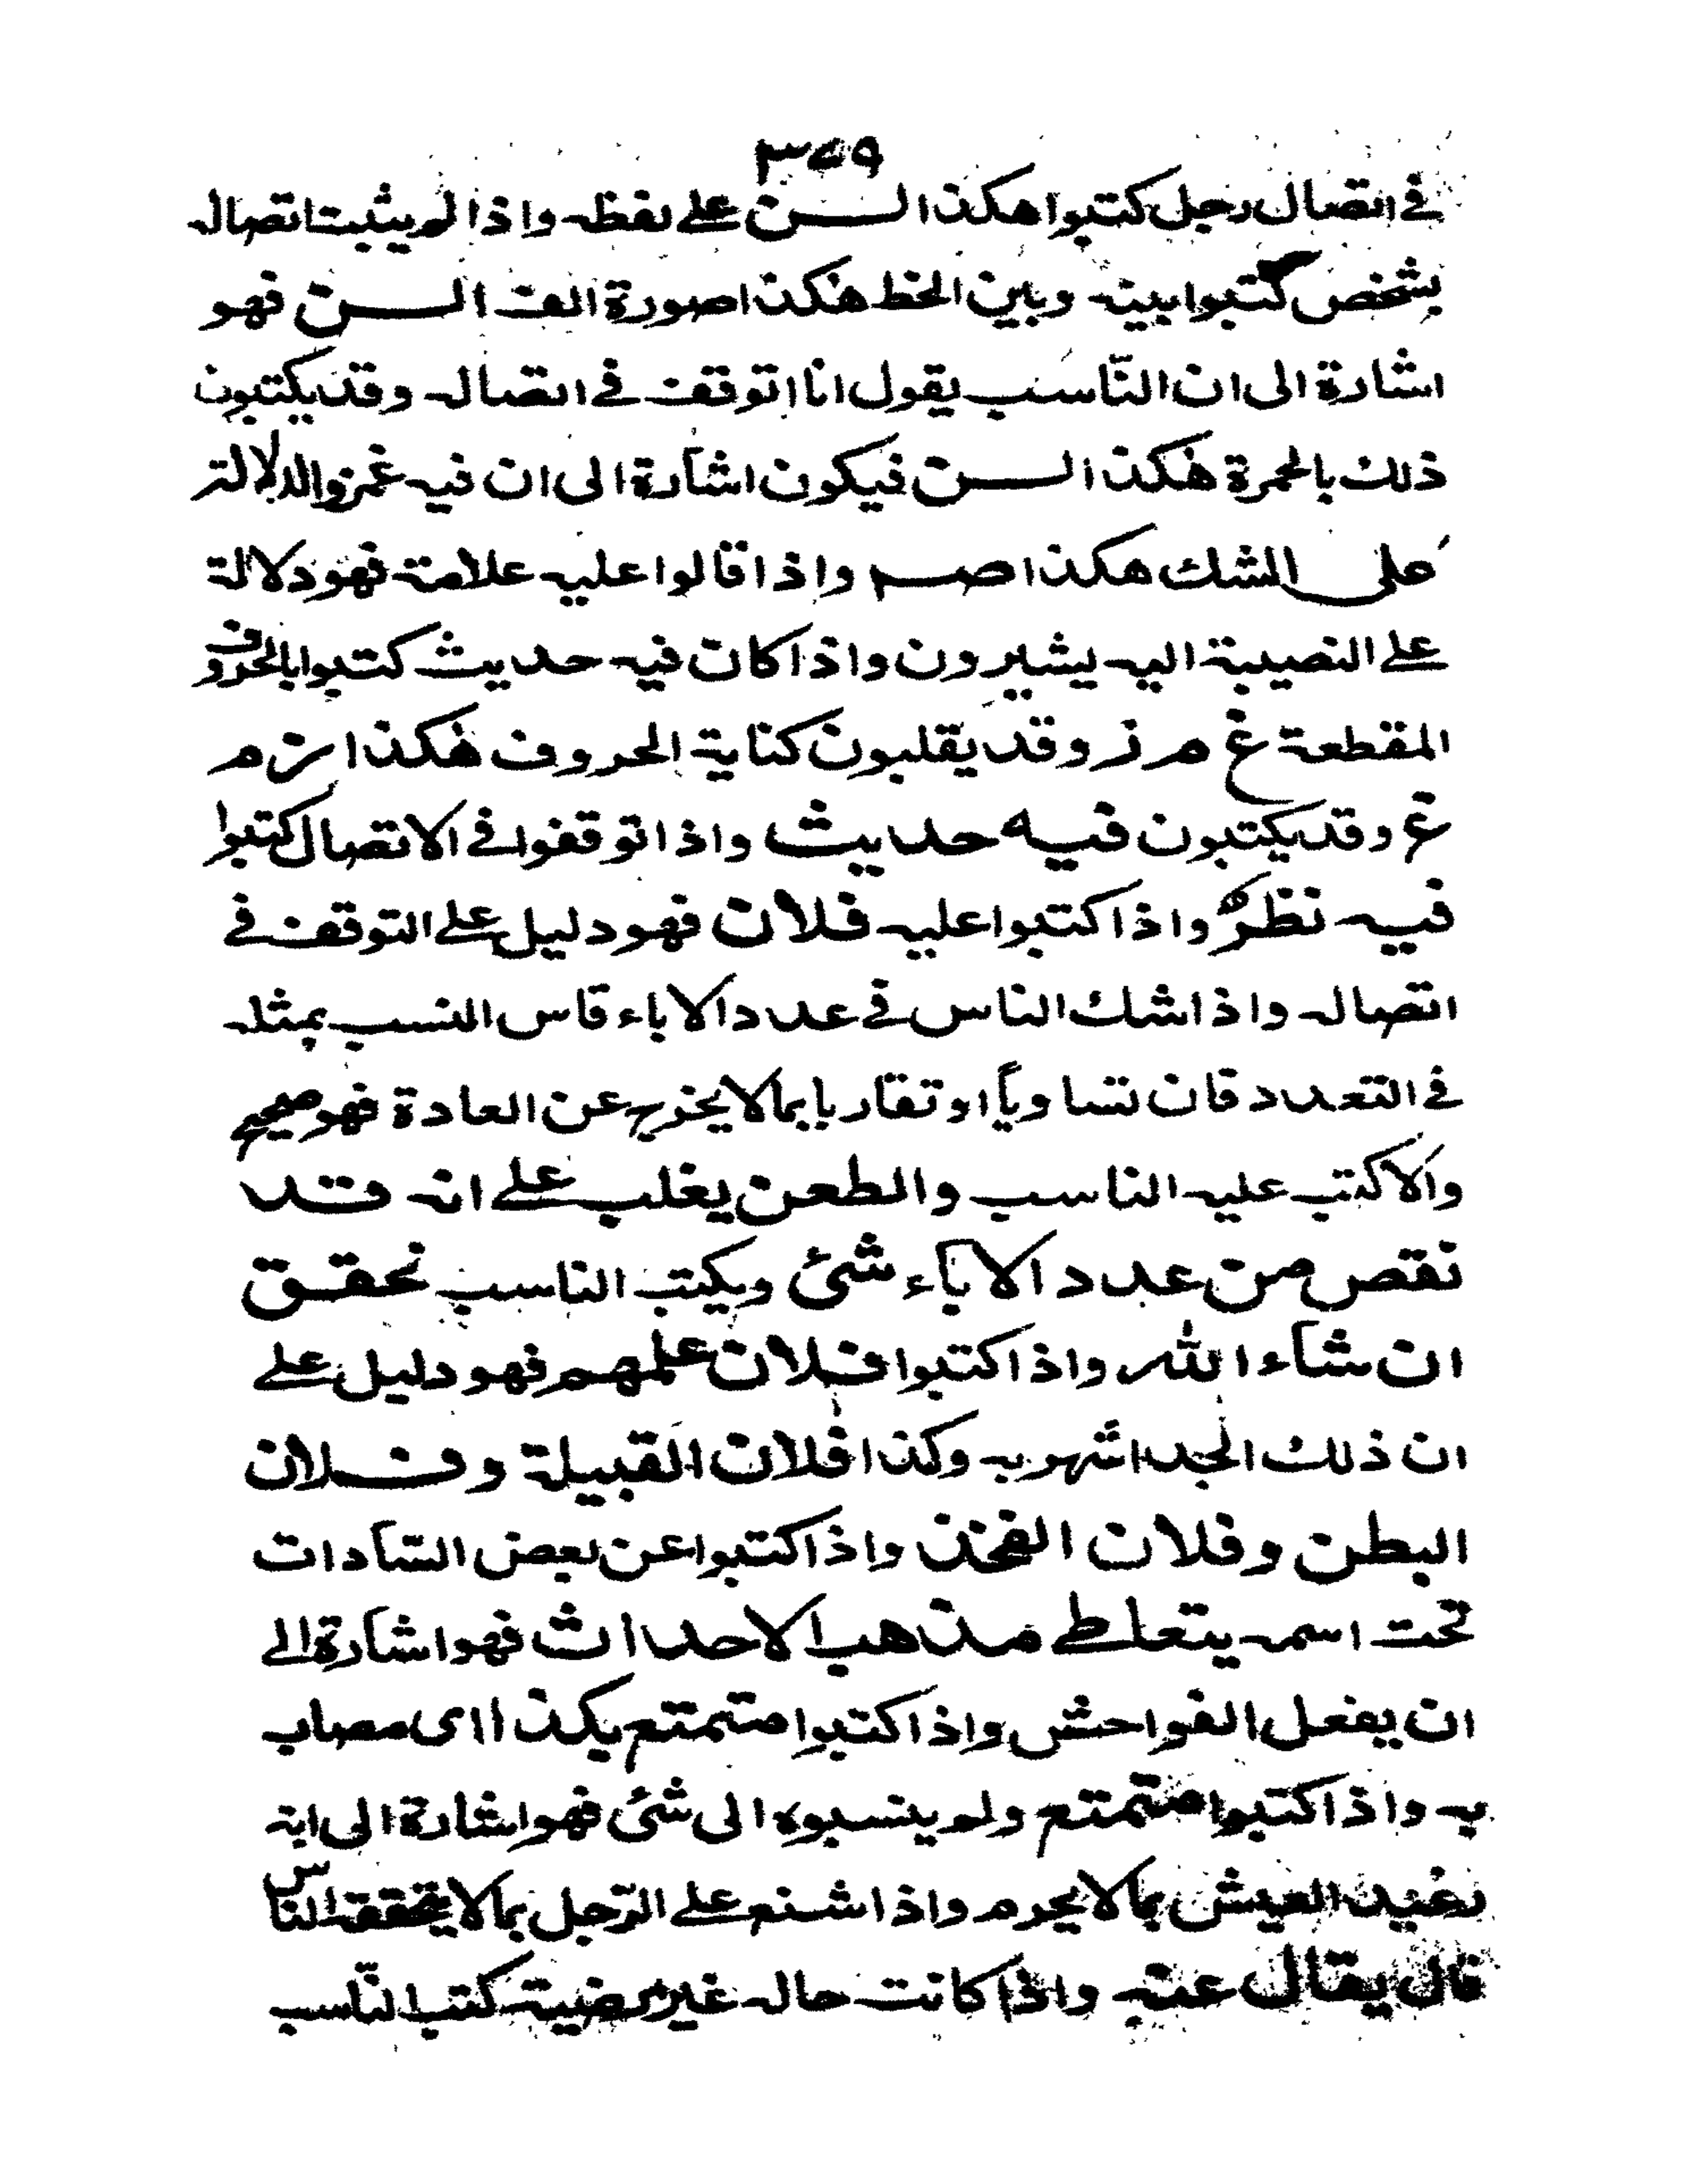 ٣٧٩
في اتصال رجل كتبوا هكذا الـــن على لفظه واذا لم يثبت اتصاله
بشخص كتبوا بينه وبين الخط هكذا صورة الف الـــن فهو
اشارة الى ان النّاسب يقول انا اتوقف في اتصاله وقد يكتبون
ذلك بالحمرة هكذا الـــن فيكون اشارة الى ان فيه غمز والدلالة
على الشك هكذا صـم واذا قالوا عليه علامة فهو دلالة
على النصيبة اليه يشيرون واذا كان فيه حديث كتبوا بالحروف
المقطعة غ م ز وقد يقلبون كناية الحروف هكذا ز م
غ وقد يكتبون فيه حديث واذا توقفوا في الاتصال كتبوا
فيه نظر واذا كتبوا عليه فلان فهو دليل على التوقف في
اتصاله واذا شك الناس في عدد الاباء قاس النسب بمثله
في التعدد فان تساوياً او تقاربا بما لا يخرج عن العادة فهو صحيح
والا كتب عليه الناسب والطعن يغلب على انه قد
نقص من عدد الاباء شئ ويكتب الناسب نحقق
ان شاء الله واذا كتبوا فلان علمهم فهو دليل على
ان ذلك الجد اشهر به وكذا فلان القبيلة وفلان
البطن وفلان الفخذ واذا كتبوا عن بعض السّادات
تحت اسمه يتعاطى مذهب الاحداث فهو اشارة الى
ان يفعل الفواحش واذا كتبوا متمتع بكذا اى مصاب
به واذا كتبوا متمتع ولم ينسبوه الى شئ فهو اشارة الى انه
رغيد العيش بما لا يحرم واذا شنع على الرّجل بما لا يتحققه الناس
قال يقال عنه واذا كانت حاله غير مرضية كتب النّاسب